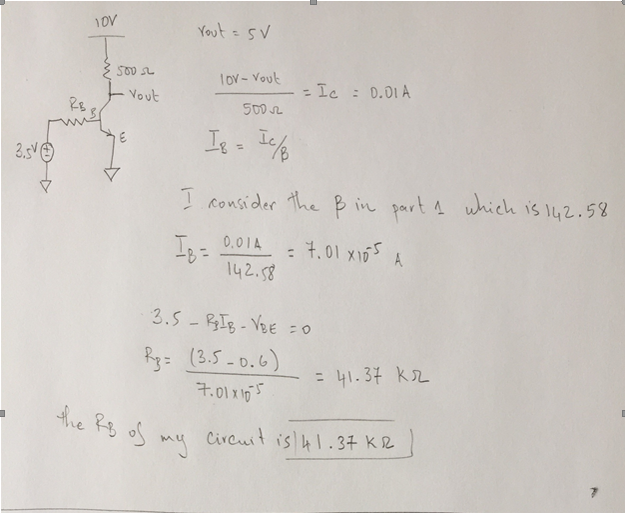 10V
500Ω
Vout
RB
B
E
3.5V
Vout = 5V
10V - Vout / 500Ω = Ic = 0.01A
IB = Ic/β
I consider the β in part 1 which is 142.58
IB = 0.01A / 142.58 = 7.01 x10^-5 A
3.5 - RBIB - VBE = 0
RB = (3.5 - 0.6) / 7.01 x10^-5 = 41.37 KΩ
the RB of my circuit is 41.37 KΩ